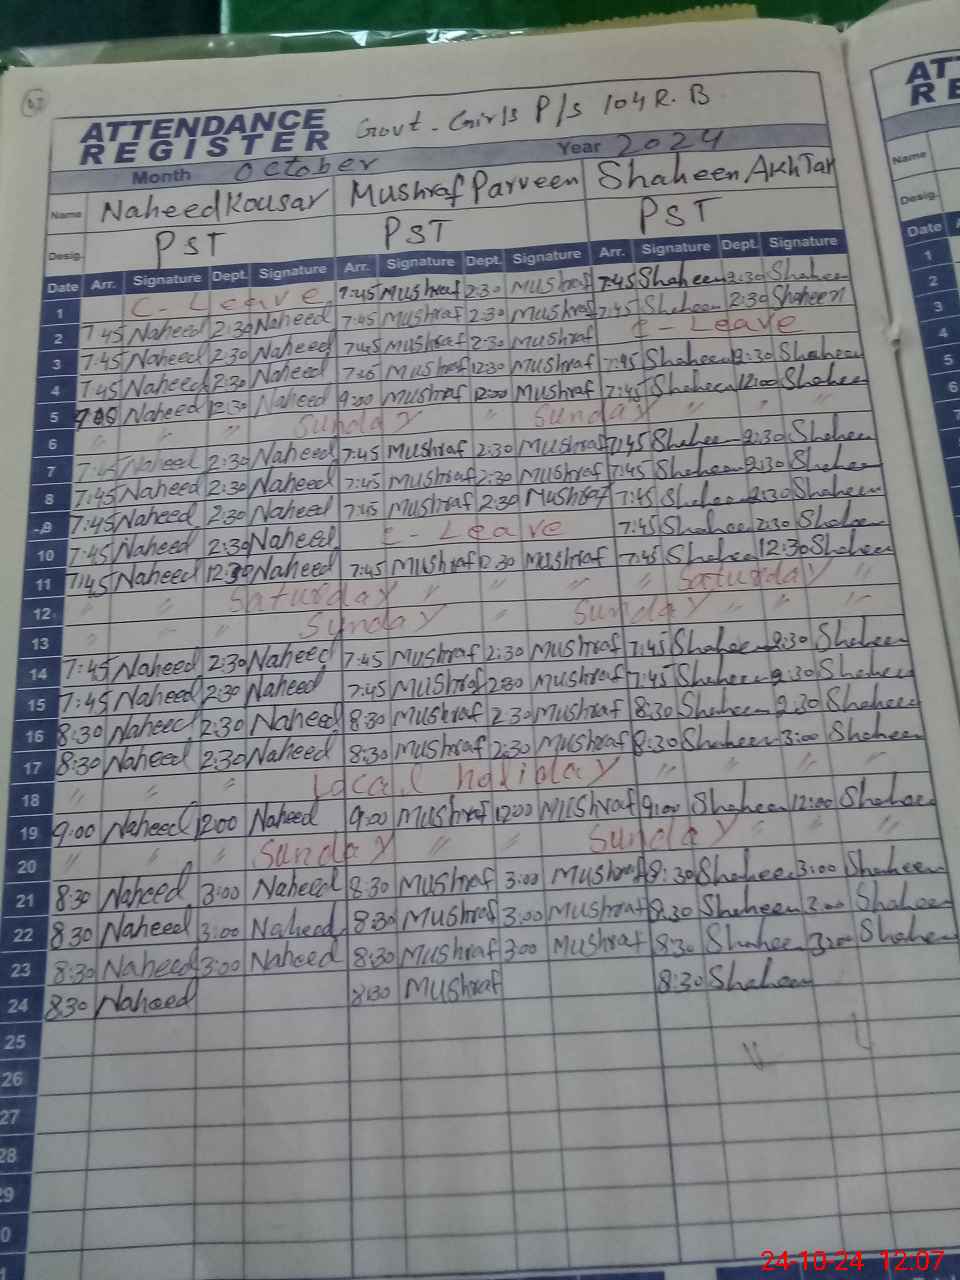 ATTENDANCE REGISTER Govt - Girls P/s 104 R. B
Month October Year 2024
Name Naheed Kousar Mushraf Parveen Shaheen Akhtar
Desig. PST PST PST
Date Arr. Signature Dept. Signature Arr. Signature Dept. Signature Arr. Signature Dept. Signature
1 C - Leave 7:45 Mushraf 2:30 Mushraf 7:45 Shaheen 2:30 Shaheen
2 7:45 Naheed 2:30 Naheed 7:45 Mushraf 2:30 Mushraf 7:45 Shaheen 2:30 Shaheen
3 7:45 Naheed 2:30 Naheed 7:45 Mushraf 2:30 Mushraf C - Leave
4 7:45 Naheed 2:30 Naheed 7:45 Mushraf 12:30 Mushraf 7:45 Shaheen 12:30 Shaheen
5 Naheed 12:30 Naheed 9:00 Mushraf 12:00 Mushraf 7:45 Shaheen 12:00 Shaheen
6 " " " Sunday " Sunday " " "
7 7:45 Naheed 2:30 Naheed 7:45 Mushraf 2:30 Mushraf 7:45 Shaheen 2:30 Shaheen
8 7:45 Naheed 2:30 Naheed 7:45 Mushraf 2:30 Mushraf 7:45 Shaheen 2:30 Shaheen
9 7:45 Naheed 2:30 Naheed 7:45 Mushraf 2:30 Mushraf 7:45 Shaheen 2:30 Shaheen
10 7:45 Naheed 2:30 Naheed C - Leave 7:45 Shaheen 2:30 Shaheen
11 7:45 Naheed 12:30 Naheed 7:45 Mushraf 12:30 Mushraf 7:45 Shaheen 12:30 Shaheen
12 " " Saturday " " " " Saturday "
13 " " Sunday " Sunday " " "
14 7:45 Naheed 2:30 Naheed 7:45 Mushraf 2:30 Mushraf 7:45 Shaheen 2:30 Shaheen
15 7:45 Naheed 2:30 Naheed 7:45 Mushraf 2:30 Mushraf 7:45 Shaheen 2:30 Shaheen
16 8:30 Naheed 2:30 Naheed 8:30 Mushraf 2:30 Mushraf 8:30 Shaheen 2:30 Shaheen
17 8:30 Naheed 2:30 Naheed 8:30 Mushraf 2:30 Mushraf 8:30 Shaheen 3:00 Shaheen
18 " " " Local holiday " " " "
19 9:00 Naheed 12:00 Naheed 9:00 Mushraf 12:00 Mushraf 9:00 Shaheen 12:00 Shaheen
20 " " " Sunday " " Sunday " " "
21 8:30 Naheed 3:00 Naheed 8:30 Mushraf 3:00 Mushraf 8:30 Shaheen 3:00 Shaheen
22 8:30 Naheed 3:00 Naheed 8:30 Mushraf 3:00 Mushraf 8:30 Shaheen 3:00 Shaheen
23 8:30 Naheed 3:00 Naheed 8:30 Mushraf 3:00 Mushraf 8:30 Shaheen 3:00 Shaheen
24 8:30 Naheed 8:30 Mushraf 8:30 Shaheen
25
26
27
28
29
0
AT
RE
Name
Desig.
Date A
1
2
3
4
5
6
7
24-10-24 12:07